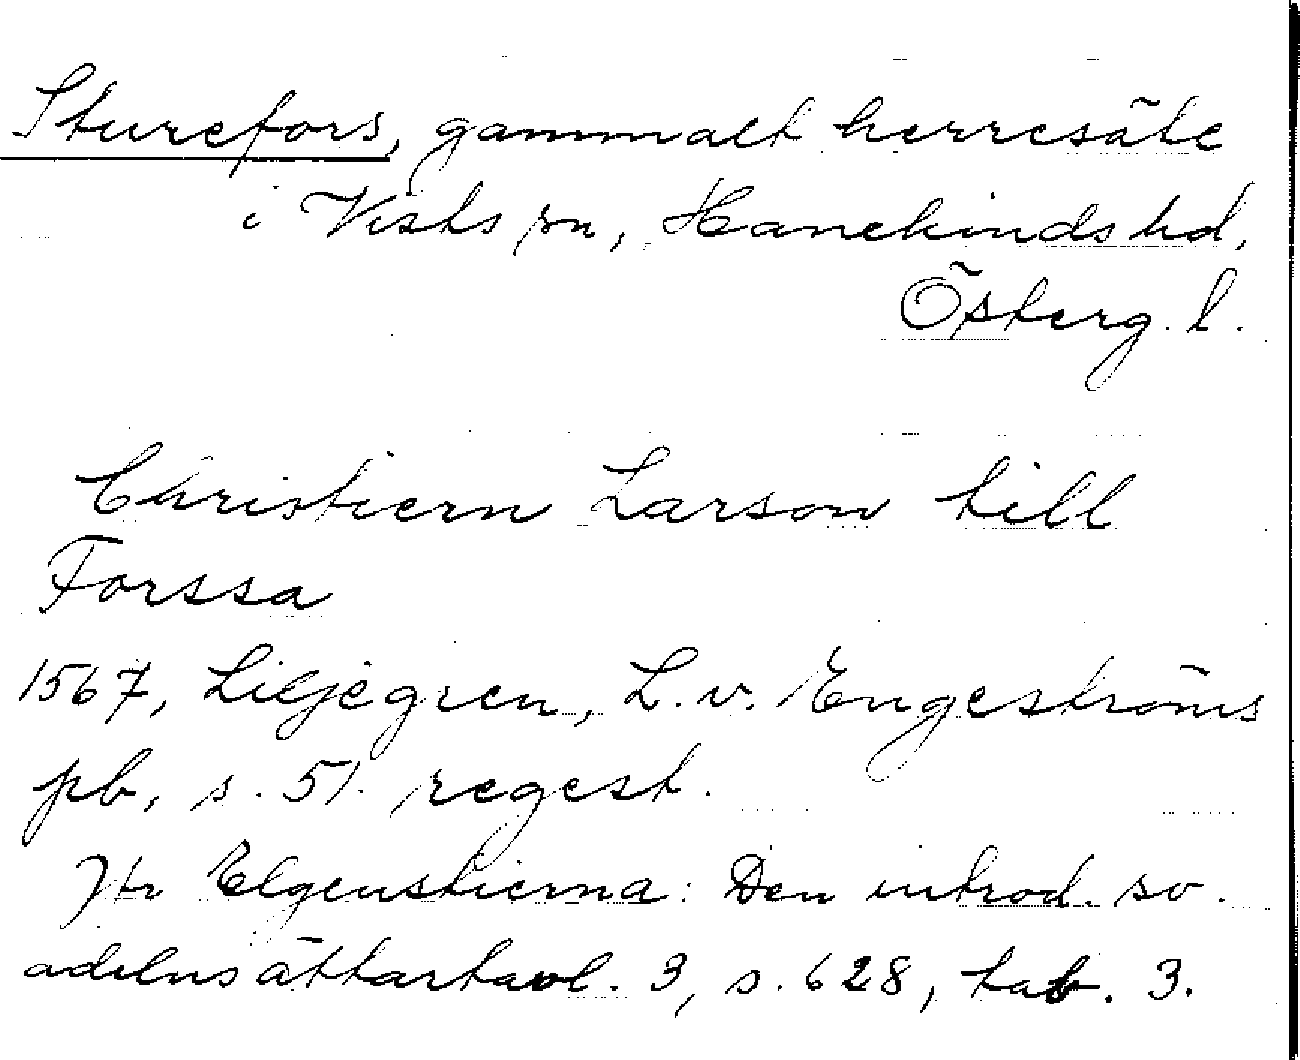 Sturefors, gammalt herresäte
i Vists sn, Hanekinds hd,
Österg. l.
Christiern Larson till
Forssa
1567, Liljegren, L. v. Engeströms
pb, s. 51. regest.
Jfr Elgenstierna: Den introd. sv.
adelns ättartavl. 3, s. 628, tab. 3.